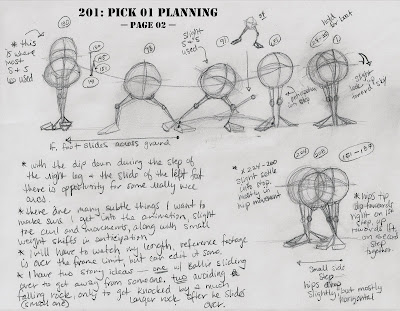 201: PICK 01 PLANNING
— PAGE 02 —
* this
is where
most
S + S
is used
slight
S + S
used
hold
for beat
slight
look
toward
sky
anticipation
foot slides across ground
* with the dip down during the step of
the right leg & the slide of the left foot
there is opportunity for some really nice
arcs.
* there are many subtle things I want to
make sure I get into the animation, slight
toe curl and movements, along with small
weight shifts in anticipation
* I will have to watch my length, reference footage
is over the frame limit, but can edit it some.
* I have two story ideas — one w/ Ballie sliding
over to get away from someone, two avoiding a
falling rock, only to get knocked by a much
(small one) larger rock after he slides
over.
slight settle
into step,
mostly in
hip movement
* hips tip
right on 1st
step, up
towards left
on second
step
together
small side
step
hips dip
slightly but mostly
horizontal